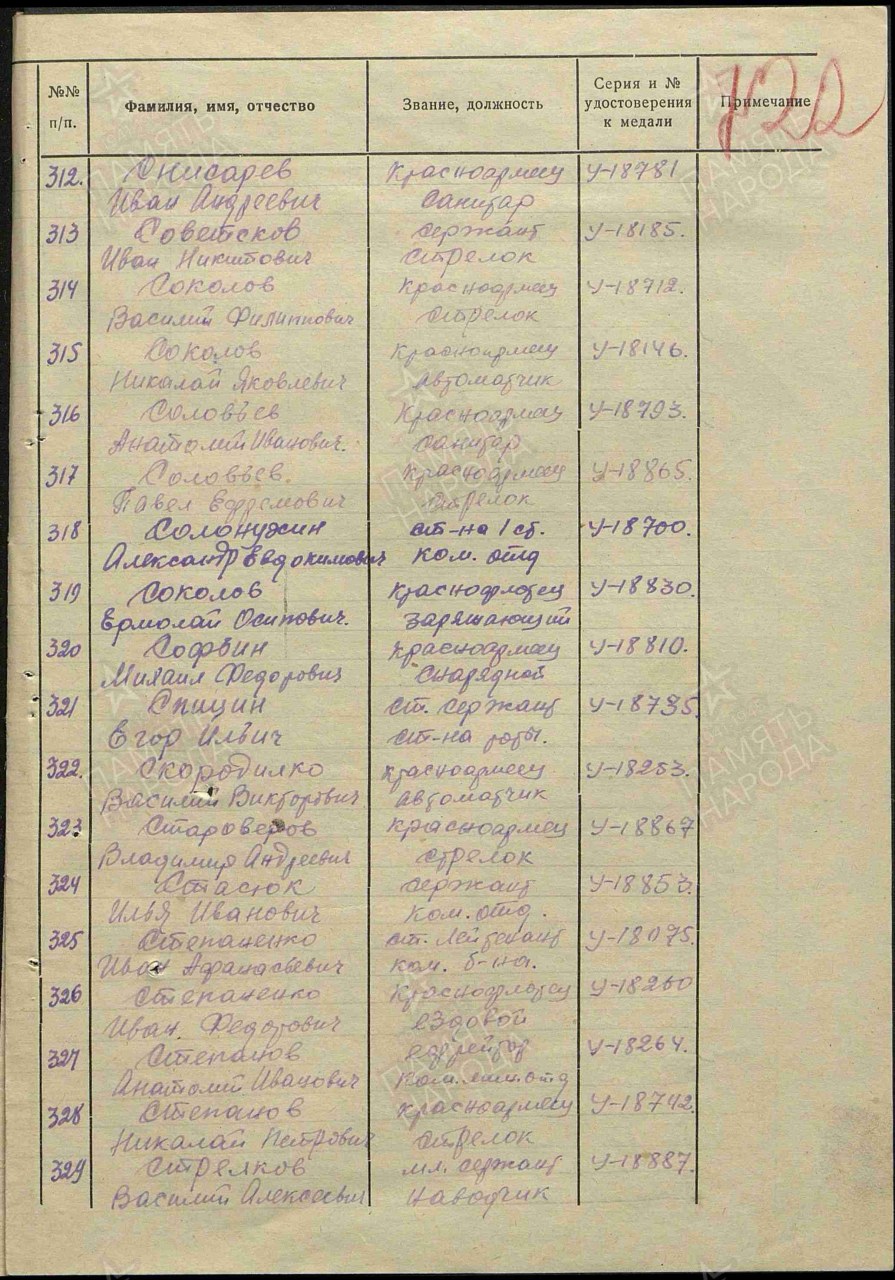 №№ п/п. Фамилия, имя, отчество Звание, должность Серия и № удостоверения к медали Примечание
122
312. Снисарев Красноармеец У-18781
Иван Андреевич Санитар
313 Советсков сержант У-18185.
Иван Никитович Стрелок
314 Соколов Красноармеец У-18712.
Василий Филиппович Стрелок
315 Соколов Красноармеец У-18146.
Николай Яковлевич Автоматчик
316 Соловьев Красноармеец У-18793.
Анатолий Иванович. Санитар
317 Соловьев Красноармеец У-18865.
Павел Ефремович Стрелок
318 Солонужин ст-на 1 ст. У-18700.
Александр Евдокимович ком. отд
319 Соколов Краснофлотец У-18830.
Ермолай Осипович. заряжающий
320 Софьин Красноармеец У-18810.
Михаил Федорович Снарядной
321 Спицин ст. сержант У-18795.
Егор Ильич ст-на роты.
322. Скоробилко Красноармеец У-18253.
Василий Викторович Автоматчик
323 Староверов Красноармеец У-18867
Владимир Андреевич стрелок
324 Стасюк сержант У-18853.
Илья Иванович ком. отд.
325 Степаненко ст. Лейтенант У-18075.
Иван Афанасьевич ком. б-на.
326 Степаненко Краснофлотец У-18260
Иван Федорович ездовой
327 Степанов ефрейтор У-18264.
Анатолий Иванович
328 Степанов Красноармеец У-18742.
Николай Петрович Стрелок
329 Стрелков мл. сержант У-18887.
Василий Алексеевич наводчик
ПАМЯТЬ НАРОДА